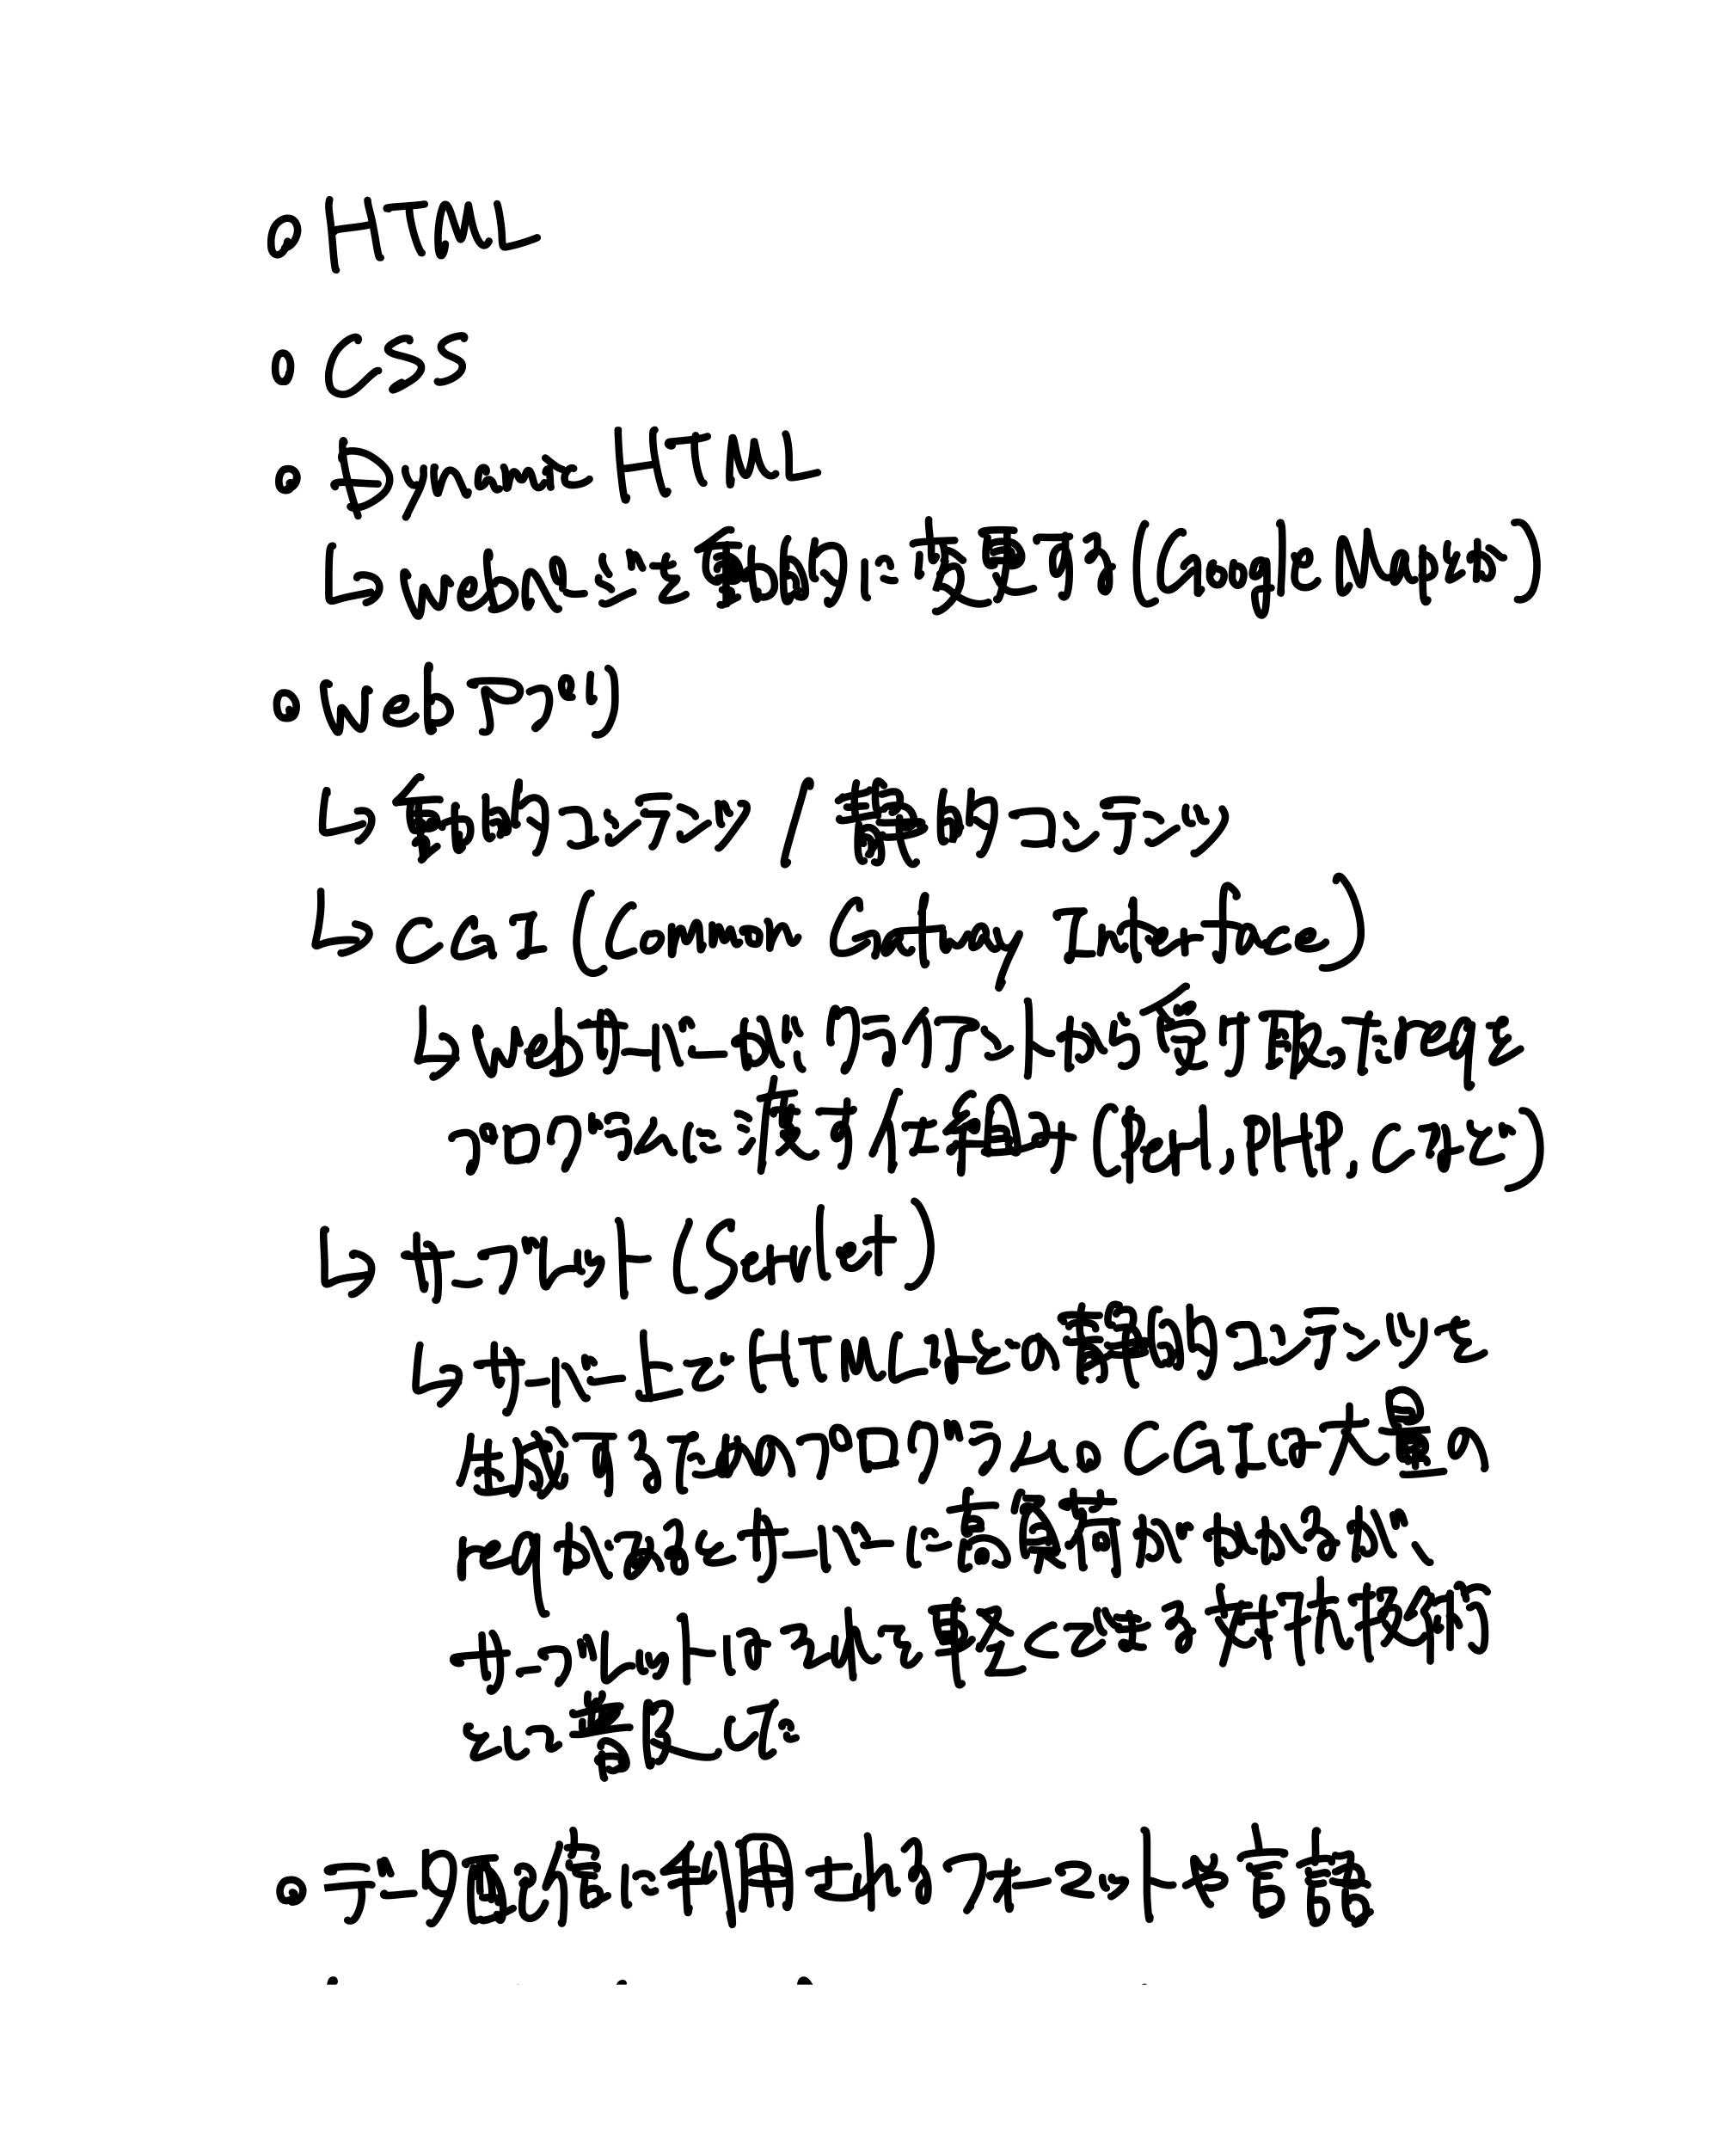 ○ HTML
○ CSS
○ Dynamic HTML
↳ webページを動的に変更する(Google Mapとか)
○ Webアプリ
↳ 動的コンテンツ / 静的コンテンツ
↳ CGI (Common Gateway Interface)
↳ Webサーバーがクライアントから受け取ったreqを
プログラムに渡す仕組み (Perl, PHP, Cなど)
↳ サーブレット (Servlet)
↳ サーバー上でHTMLなどの動的コンテンツを
生成するためのプログラム。CGIは大量の
reqがあるとサーバーに高負荷がかかるが、
サーブレットはそれを軽くできる対抗技術
として普及した。
○ データ通信に利用されるフォーマットや言語